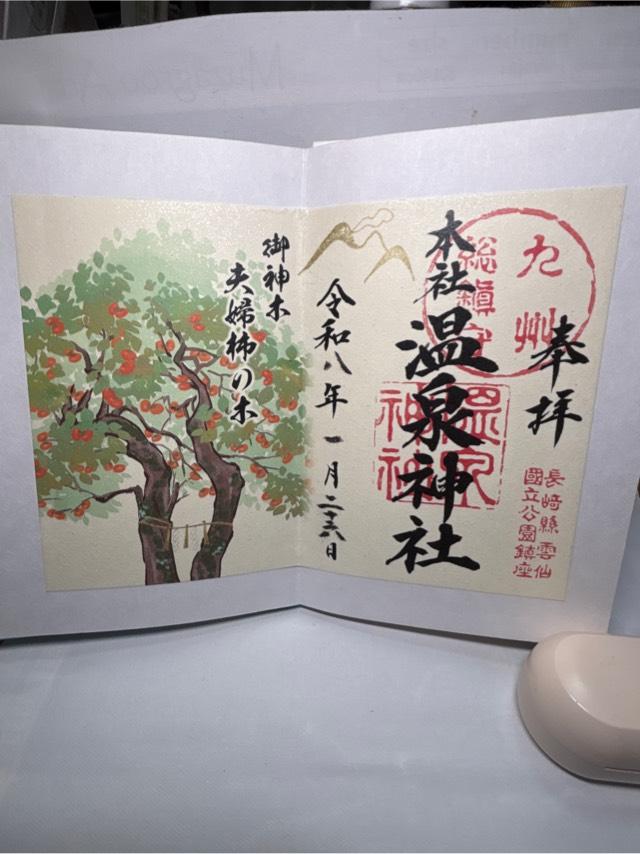 奉拝
九州
総鎮守
長﨑縣雲仙
國立公園鎮座
本社
温泉神社
温泉
神社
令和八年一月二十六日
御神木
夫婦柿の木